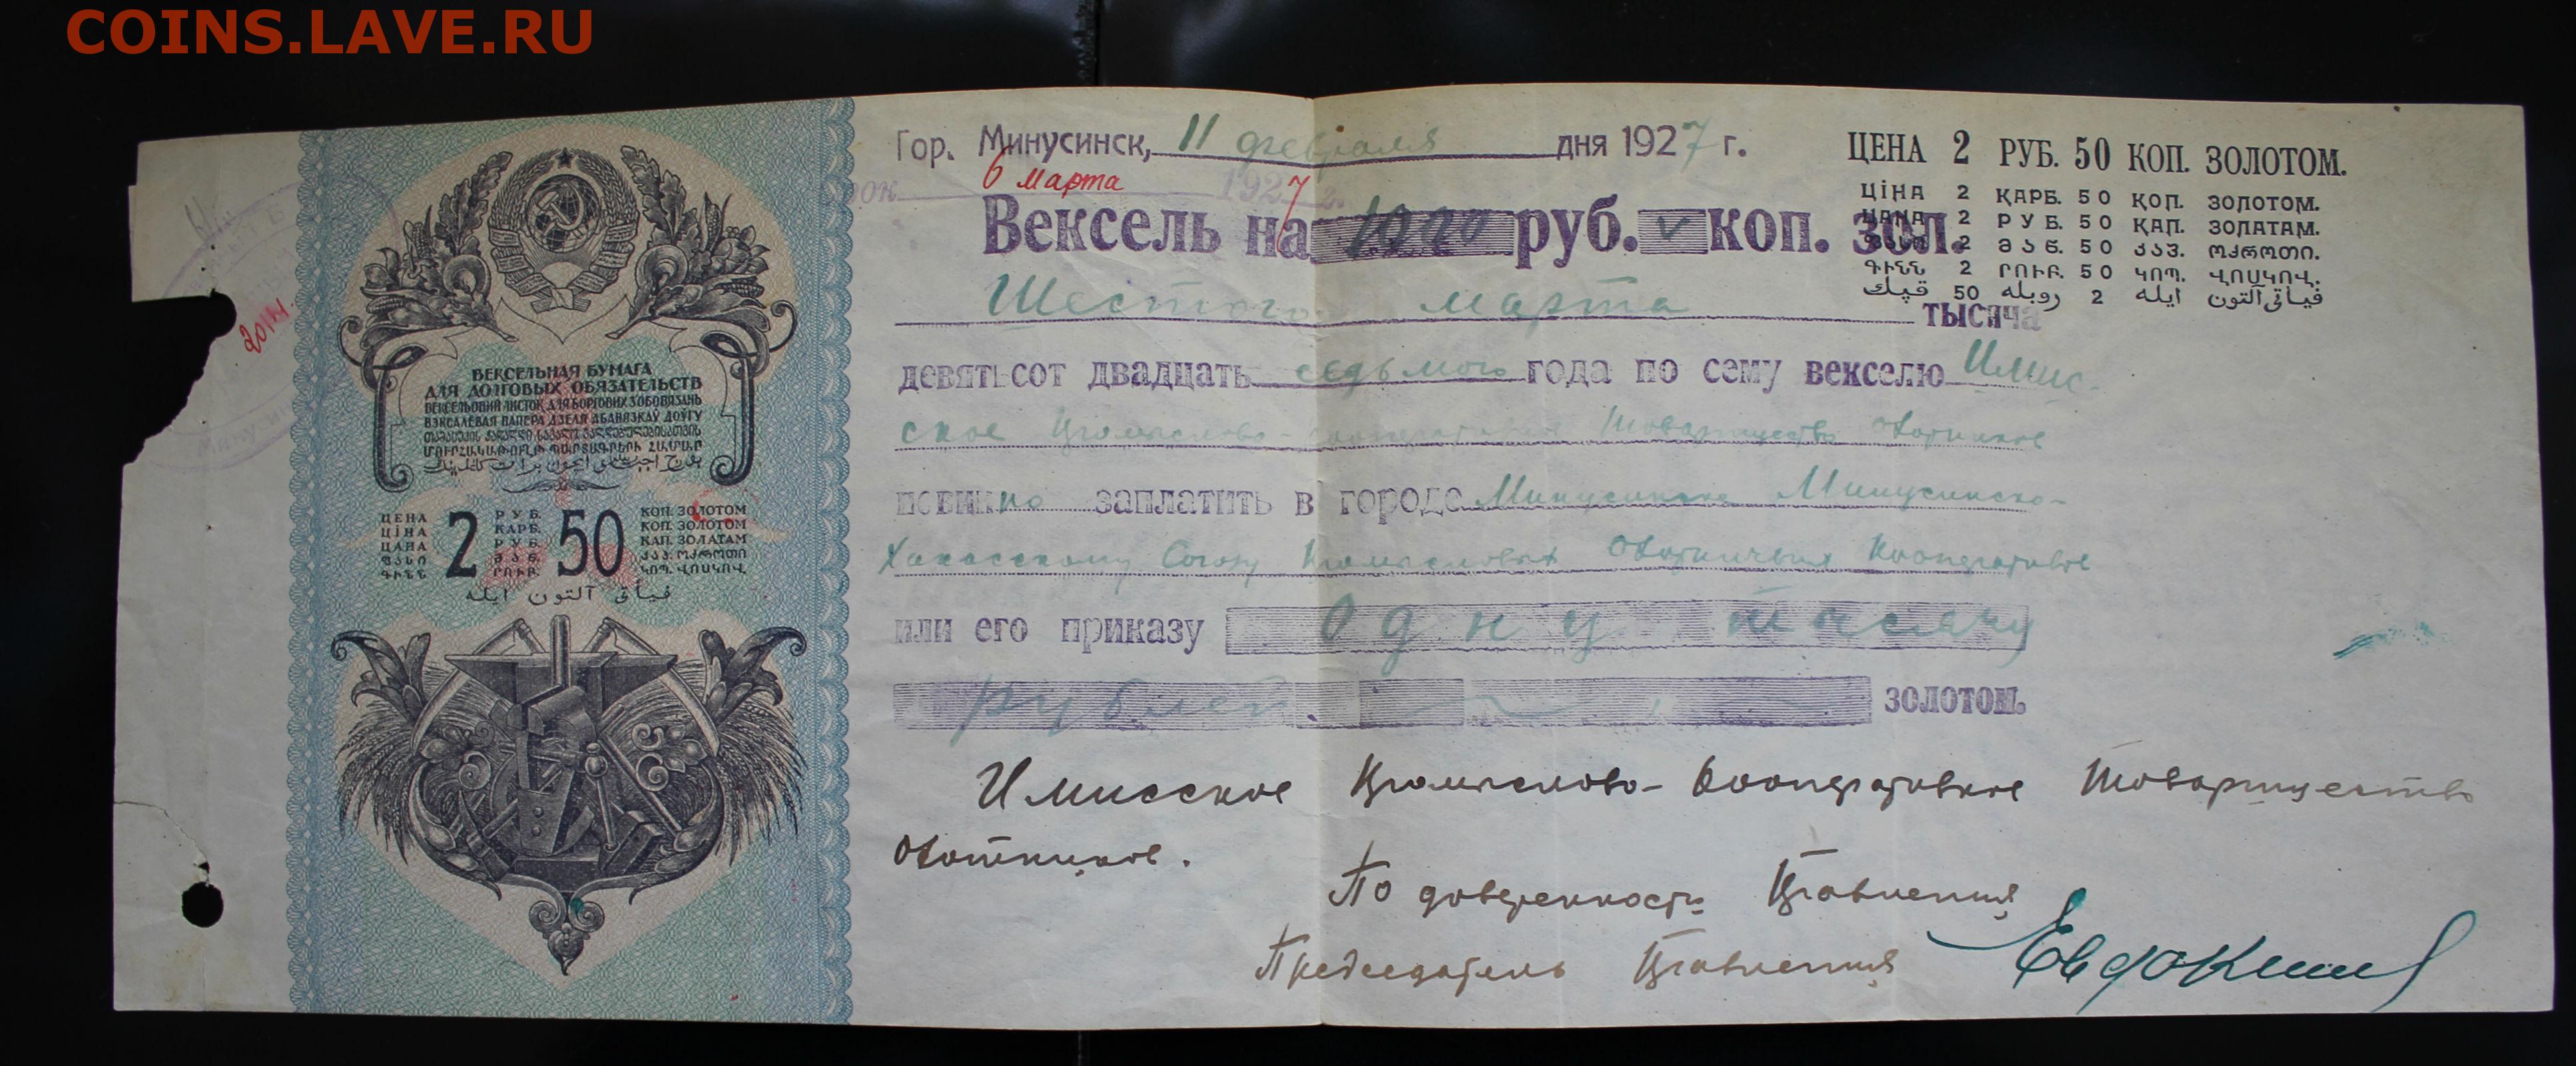 COINS.LAVE.RU
ВЕКСЕЛЬНАЯ БУМАГА
ДЛЯ ДОЛГОВЫХ ОБЯЗАТЕЛЬСТВ
ВЕКСЕЛЬОВИЙ ЛИСТОК ДЛЯ БОРГОВИХ ЗОБОВЯЗАНЬ
ВЭКСАЛЁВАЯ ПАПЕРА ДЗЕЛЯ АБАВЯЗКАЎ ДОЎГУ
ЦЕНА 2 РУБ. 50 КОП. ЗОЛОТОМ
ЦІНА КАРБ. КОП. ЗОЛОТОМ
ЦАНА РУБ. КАП. ЗОЛАТАМ
ՎՈՍԿՈՎ.
قیأتی آلتون ایله
Гор. Минусинск, 11 февраля дня 1927 г.
6 марта 1927 г.
Вексель на 1000 руб. коп. зол.
ЦЕНА 2 РУБ. 50 КОП. ЗОЛОТОМ.
ЦІНА 2 КАРБ. 50 КОП. ЗОЛОТОМ.
ЦАНА 2 РУБ. 50 КАП. ЗОЛАТАМ.
2 მან. 50 კაპ. ოქროთი.
ԳԻՆՆ 2 ՐՈՒԲ. 50 ԿՈՊ. ՎՈՍԿՈՎ.
قیأتی آلتون ایله 2 روبله 50 قپك
Шестого марта тысяча
девятьсот двадцать седьмого года по сему векселю Имис-
ское Промыслово-кооперативное Товарищество Охотников
повинно заплатить в городе Минусинске Минусинско-
Хакасскому Союзу Промысловых Охотничьих Кооперативов
или его приказу Одну тысячу
рублей золотом.
Имисское Промыслово-Кооперативное Товарищество
Охотников.
По доверенности Правления
Председатель Правления Евдокимов